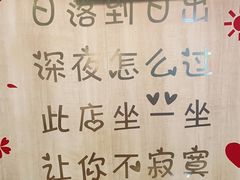 日落到日出
深夜怎么过
此店坐一坐
让你不寂寞